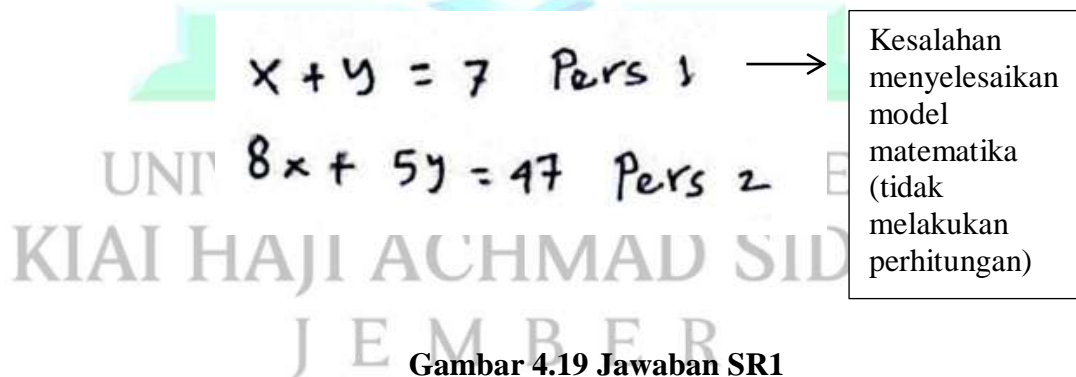 x + y = 7 Pers 1
8x + 5y = 47 Pers 2
Kesalahan
menyelesaikan
model
matematika
(tidak
melakukan
perhitungan)
UNI
KIAI HAJI ACHMAD SID
J E M B E R
Gambar 4.19 Jawaban SR1